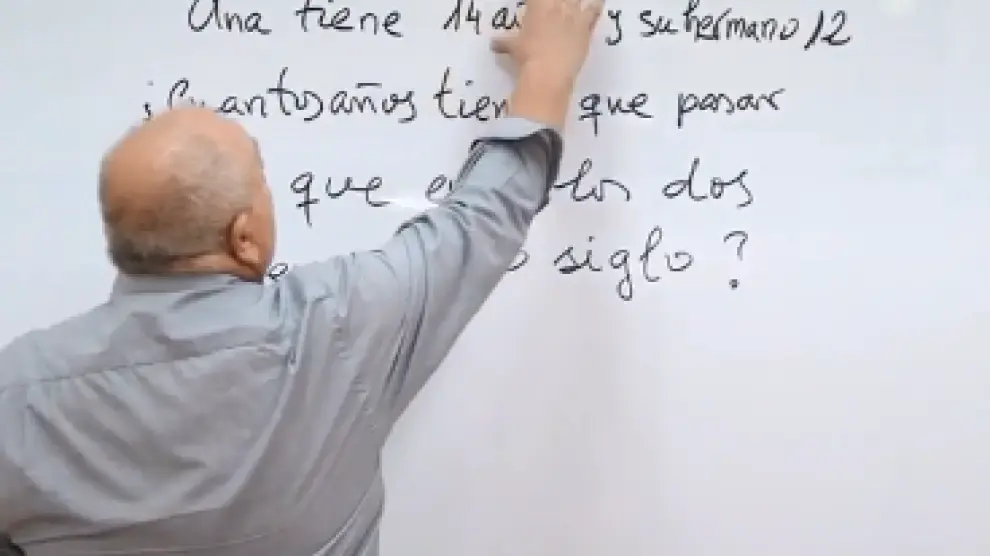 Una tiene 14 y su hermano 12
¿Cuantos años que pasar
que los dos
siglo?